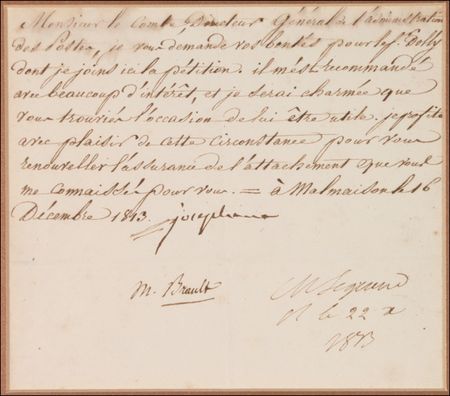 Monsieur le Comte, Directeur Général de l'administration
des Postes, je vous demande vos bontés pour le Sr. Dolly
dont je joins ici la pétition. il m'est recommandé
avec beaucoup d'intérêt, et je serai charmée que
vous trouviez l'occasion de lui être utile. je profite
avec plaisir de cette circonstance pour vous
renouveller l'assurance de l'attachement que vous
me connaissez pour vous. = à Malmaison le 16
Décembre 1813. Josephine
M. Brault
le 22 x
1813